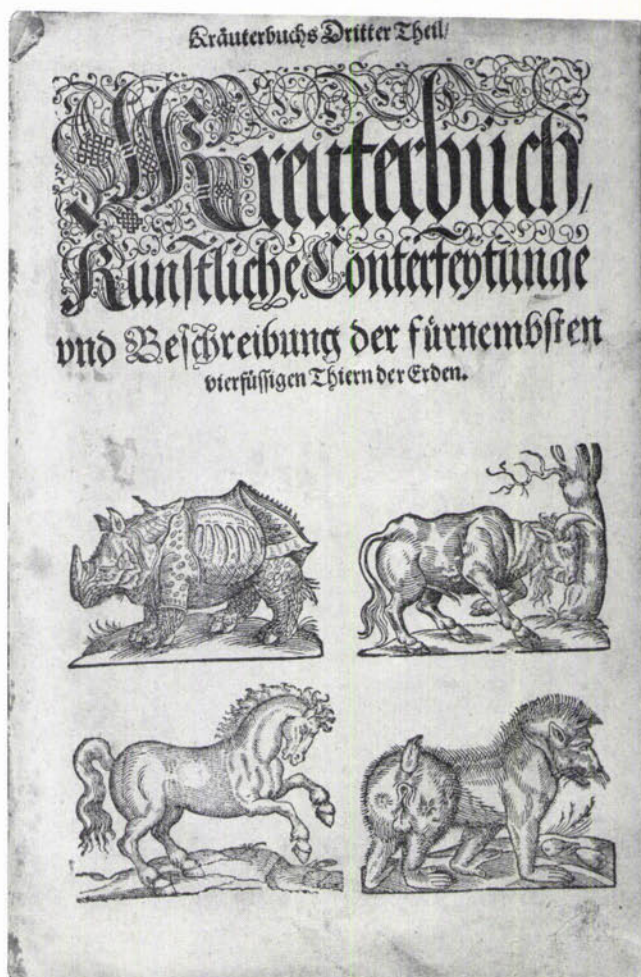 Kräuterbuchs Dritter Theil/
Kreuterbuch/
Künstliche Conterfeytunge
vnd Beschreibung der fürnembsten
vierfüssigen Thiern der Erden.